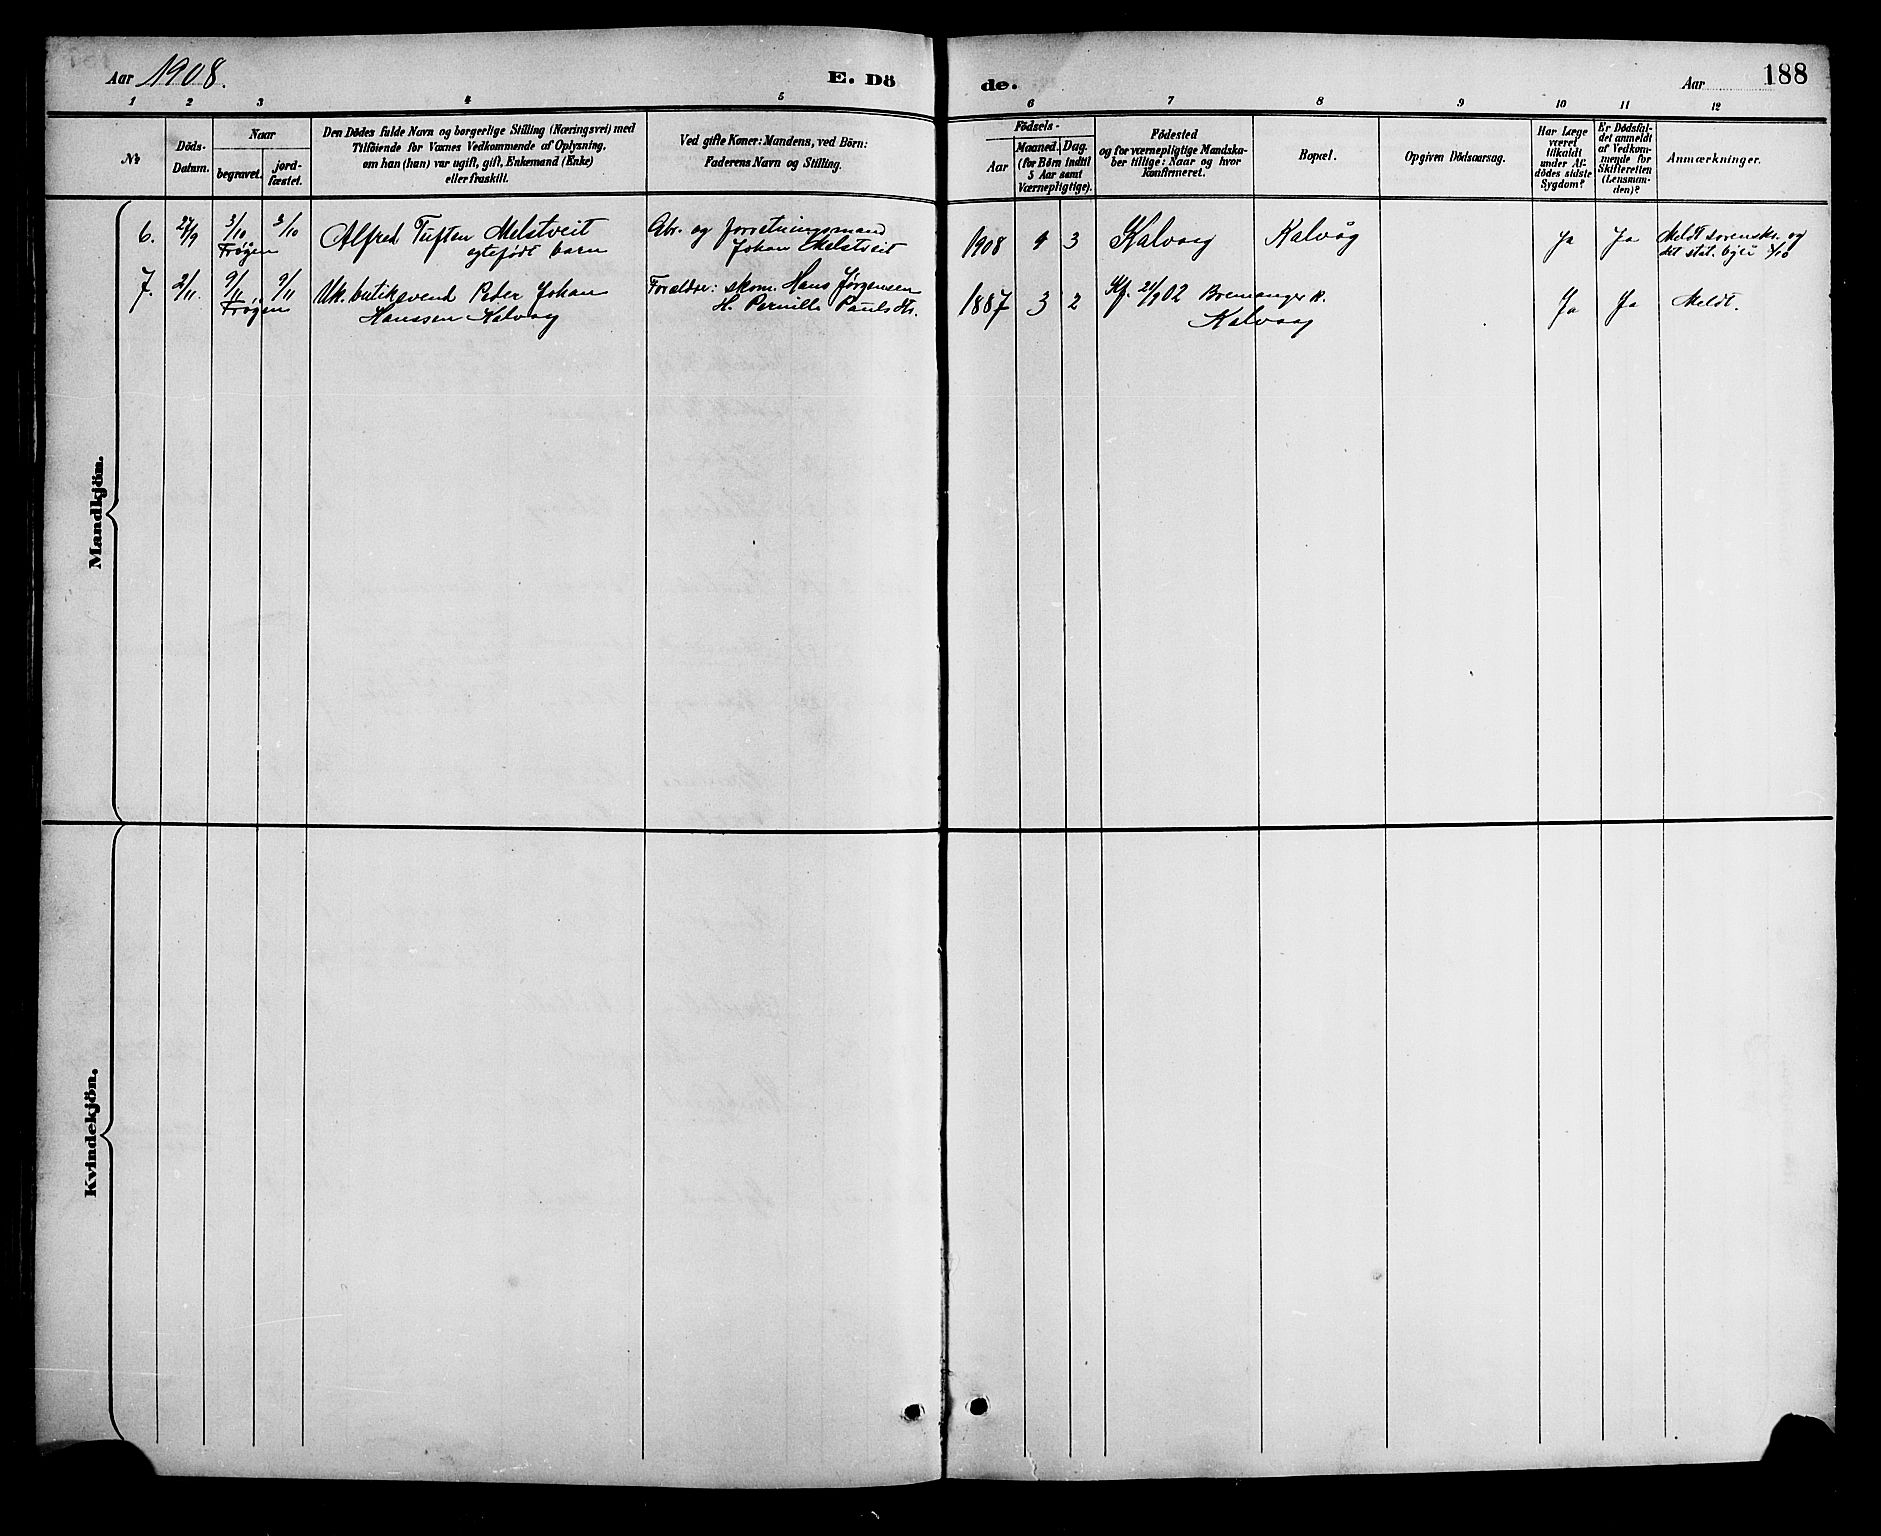 Aar 1908.
E. Dö
de.
Aar
188
1
2
3
4
5
6
7
8
9
10
11
12
No
Döds-
Datum.
Naar
begravet.
jord-
fæstet.
Den Dödes fulde Navn og borgerlige Stilling (Næringsvei) med
Tilföiende for Voxnes Vedkommende af Oplysning,
om han (hun) var ugift, gift, Enkemand (Enke)
eller fraskilt.
Ved gifte Koner: Mandens, ved Börn:
Faderens Navn og Stilling.
Födsels-
Aar
Maaned.
Dag.
(for Börn indtil
5 Aar samt
Værnepligtige).
Födested
og for værnepligtige Mandska-
ber tillige: Naar og hvor
konfirmeret.
Bopæl.
Opgiven Dödsaarsag.
Har Læge
været
tilkaldt
under Af-
dödes sidste
Sygdom?
Er Dödsfal-
det anmeldt
af Vedkom-
mende for
Skifteretten
(Lensman-
den)?
Anmærkninger.
Mandkjön.
6.
27/9
3/10
Frøyen
3/10
Alfred Tuften Melstveit
egtefødt barn
Gbr. og forretningsmand
Johan Melstveit
1908
4
3
Kalvaag
Kalvåg
Ja
Ja
Meldt sorenskr. og
det stat. byrå
7.
2/11.
9/11
Frøyen
9/11
Uk. butiksvend Peder Johan
Hanssen Kalvaag
Forældre: skom. Hans Jørgensen
H. Pernille Paulsdtr.
1887
3
2
Kf. 21/9 02 Bremanger k.
Kalvaag
Ja
Ja
Meldt.
Kvindekjön.